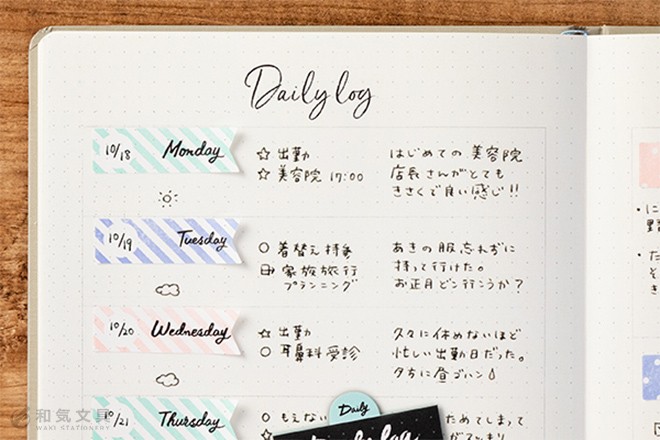 Daily log
10/18 Monday
☆ 出勤
☆ 美容院 17:00
はじめての 美容院
店長さんがとても
きさくで良い感じ!!
10/19 Tuesday
○ 着替え持参
家族旅行
プランニング
あきの服忘れずに
持って行けた。
お正月どこ行こうか?
10/20 Wednesday
☆ 出勤
○ 耳鼻科受診
久々に休めないほど
忙しい出勤日だった。
夕方に昼ゴハン
10/21 Thursday
○ もえない
ためてしまって
Daily
log
和気文具
WAKI STATIONERY